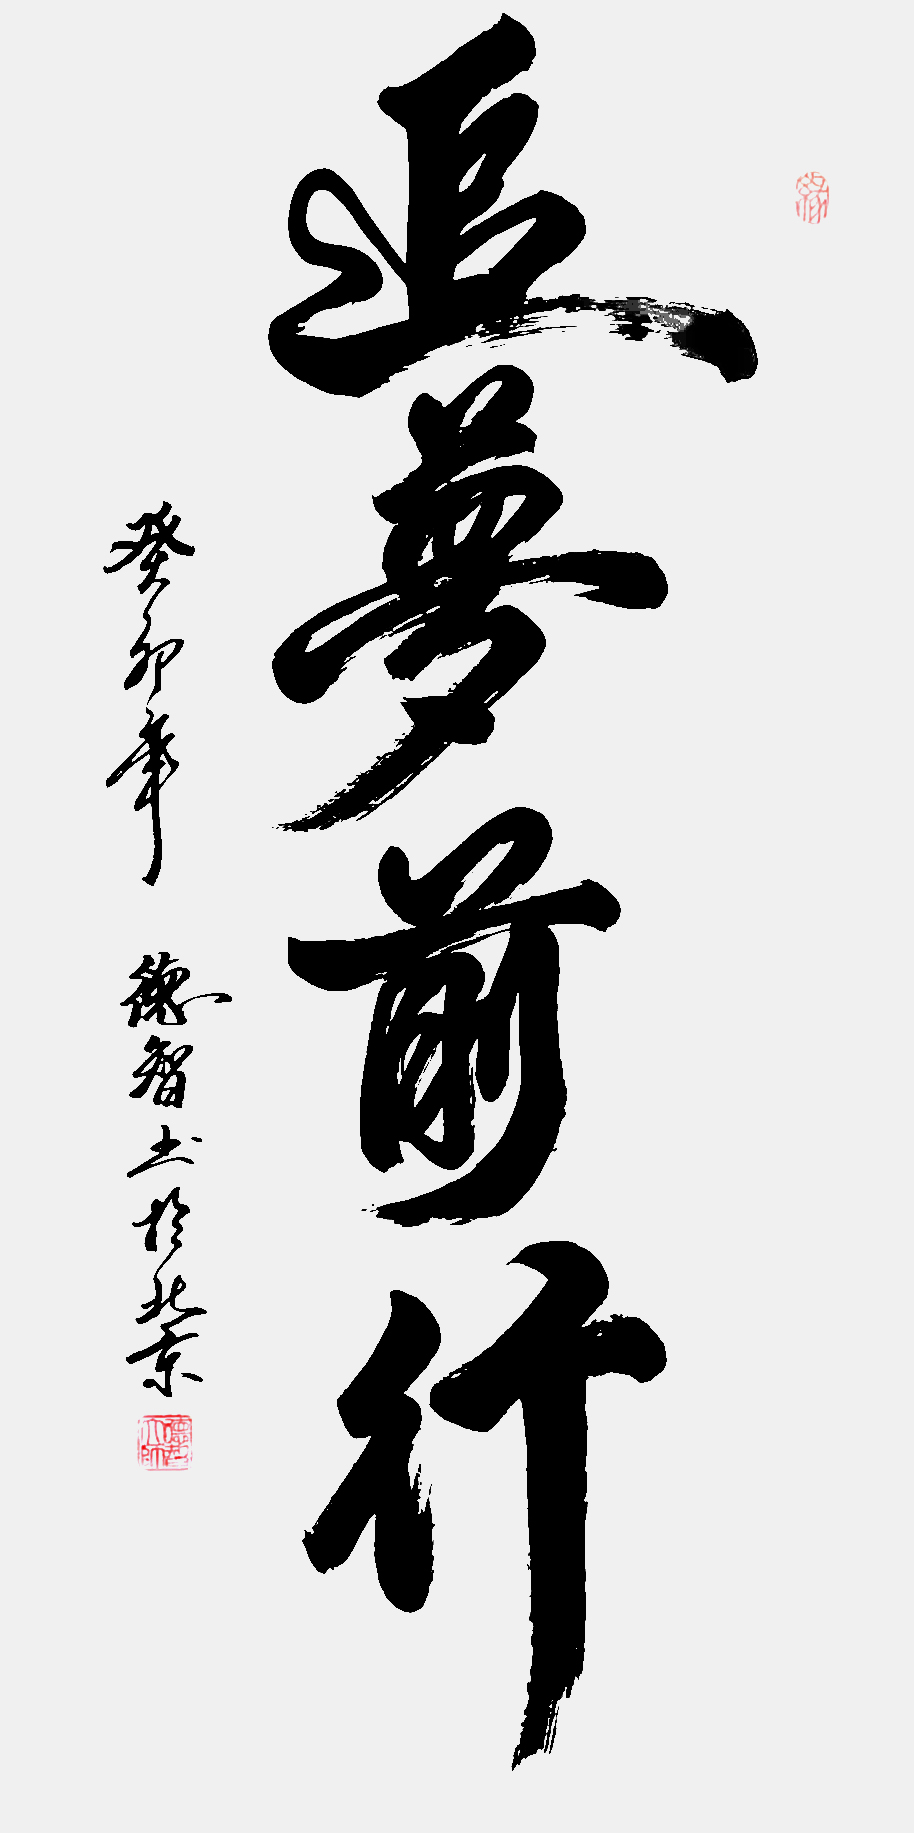 追夢前行
癸卯年 德智书於北京
缘